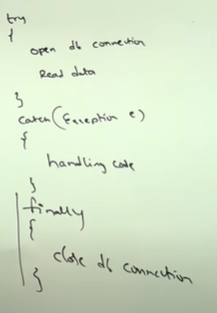 try
{
open db connection
Read data
}
catch(Exception e)
{
handling code
}
finally
{
close db connection
}